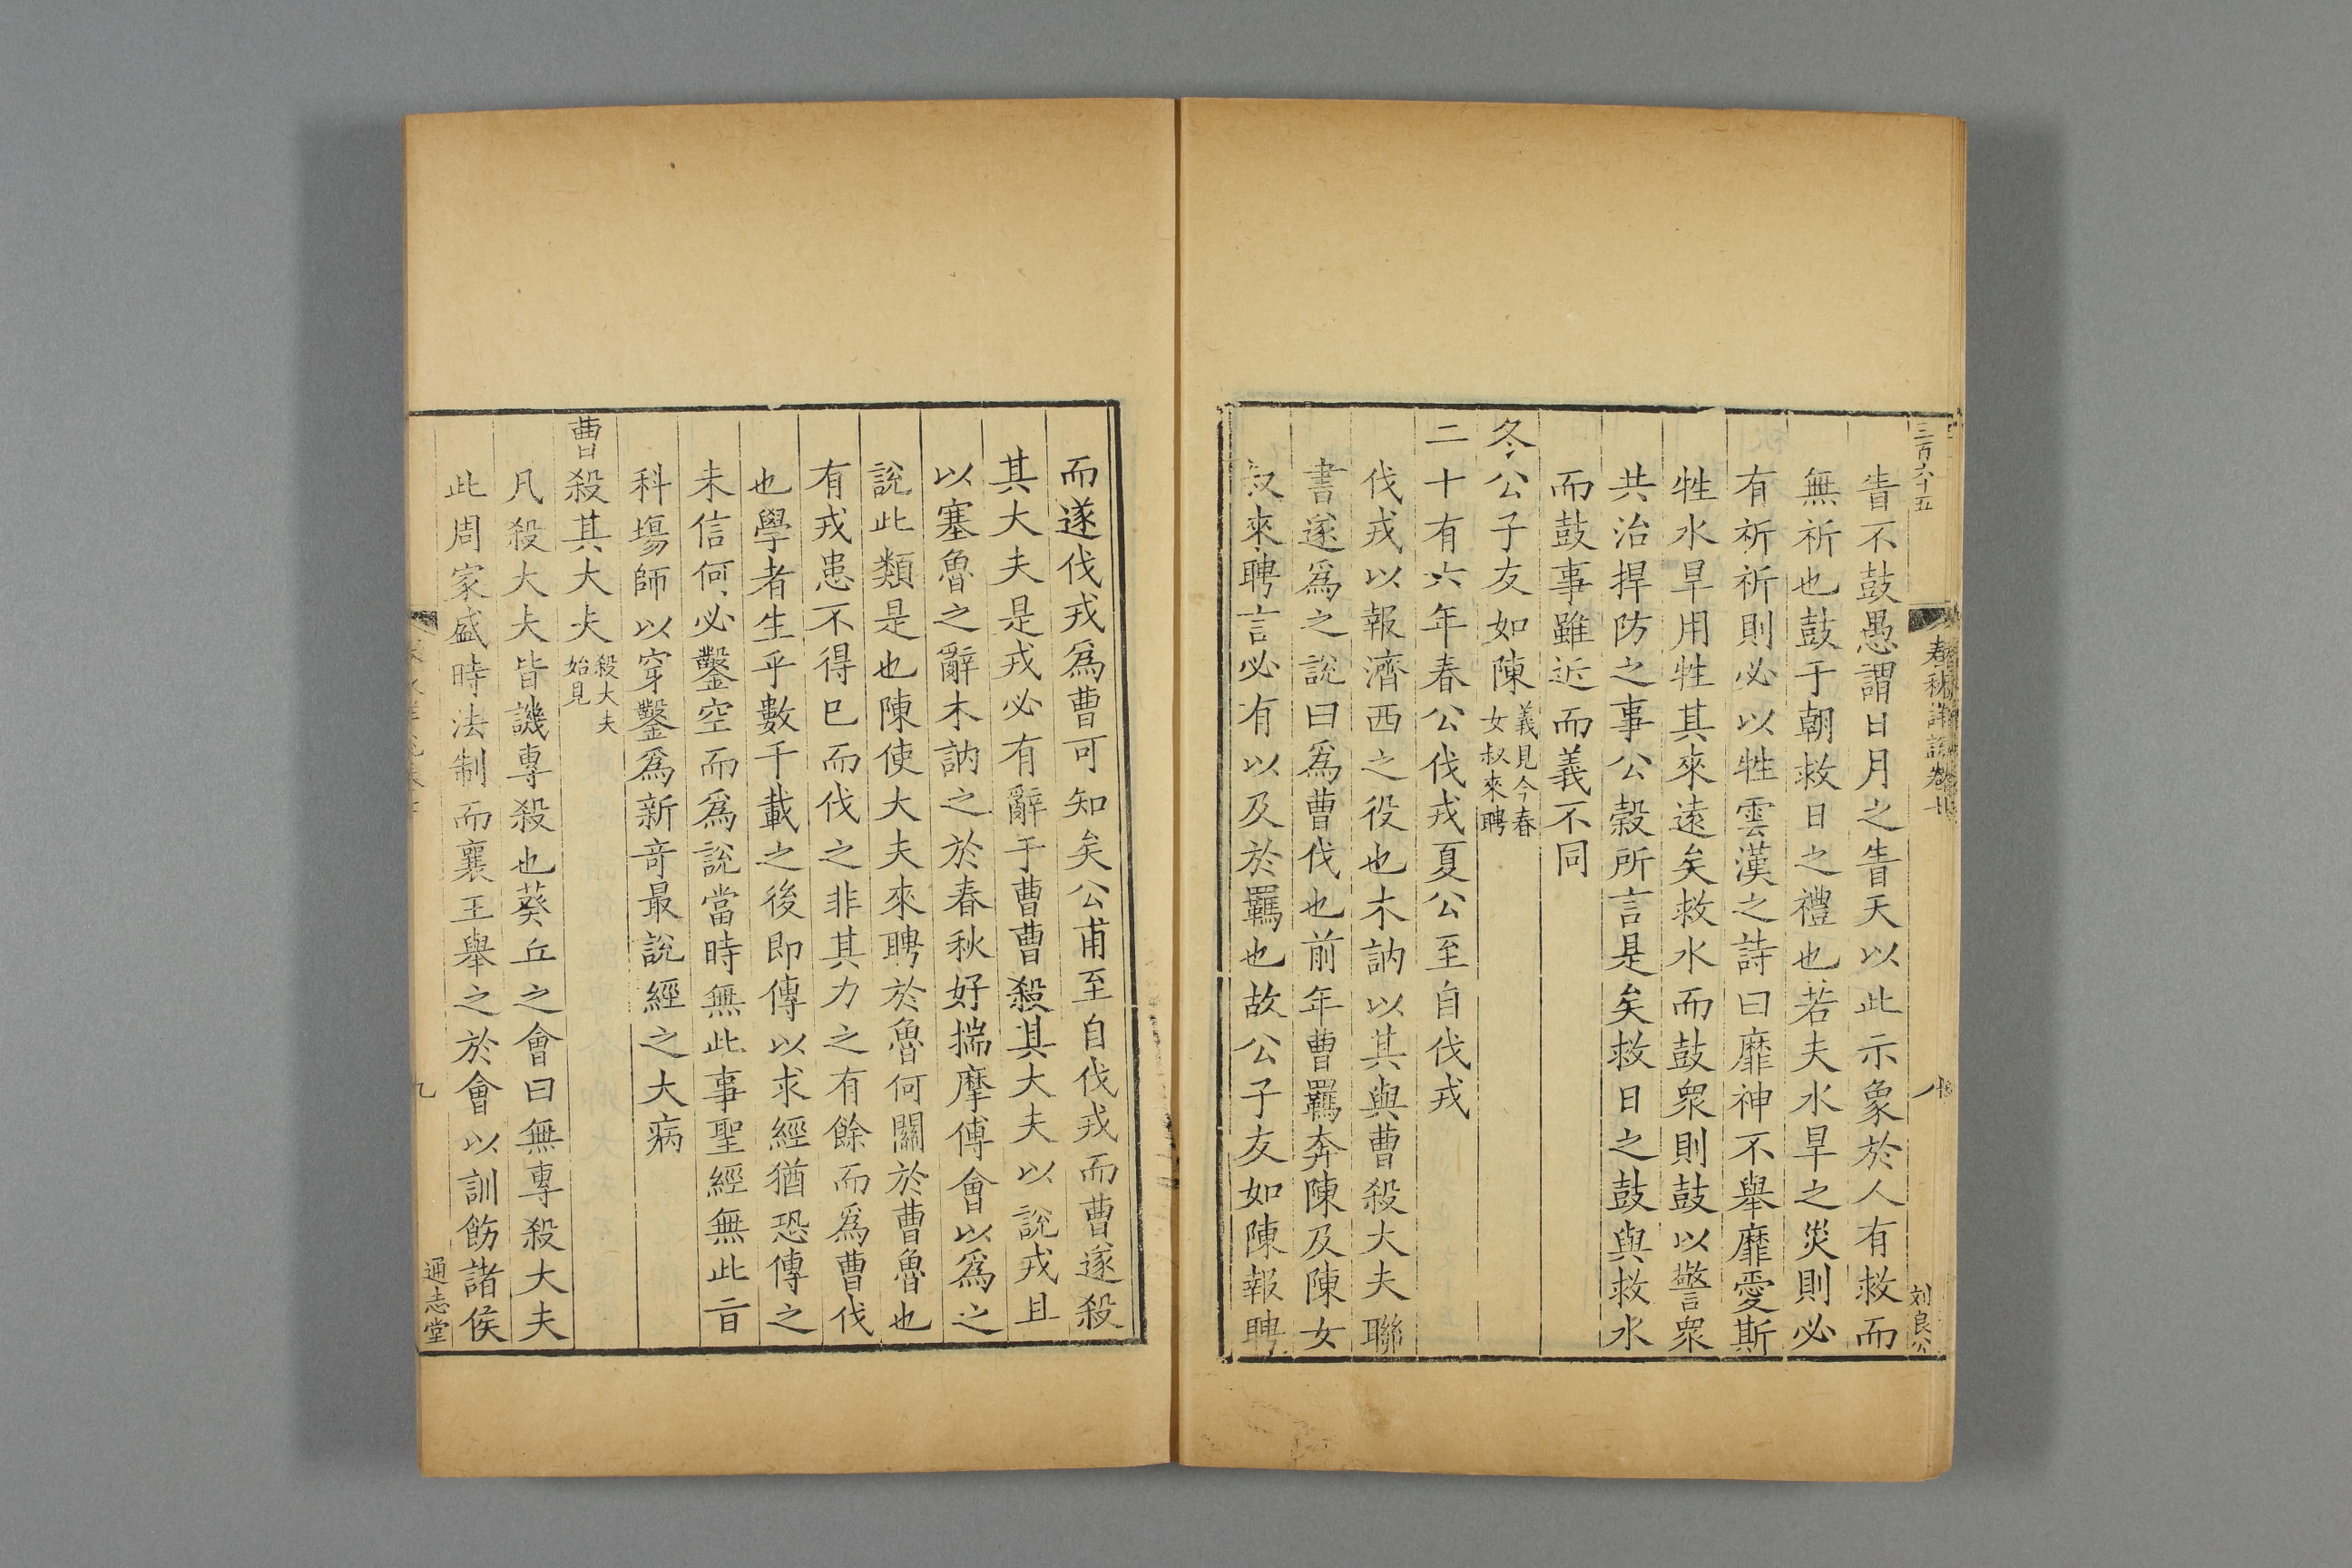 三百六十五
春秋詳說卷
刘良公
眚不鼓愚謂日月之眚天以此示象於人有救而
無祈也鼓于朝救日之禮也若夫水旱之災則必
有祈祈則必以牲雲漢之詩曰靡神不舉靡愛斯
牲水旱用牲其來遠矣救水而鼓衆則鼓以警衆
共治捍防之事公穀所言是矣救日之鼓與救水
而鼓事雖近而義不同
冬公子友如陳義見今春女叔來聘
二十有六年春公伐戎夏公至自伐戎
伐戎以報濟西之役也木訥以其與曹殺大夫聯
書遂爲之說曰爲曹伐也前年曹羈奔陳及陳女
叔來聘言必有以及於羈也故公子友如陳報聘
而遂伐戎爲曹可知矣公甫至自伐戎而曹遂殺
其大夫是戎必有辭于曹曹殺其大夫以說戎且
以塞魯之辭木訥之於春秋好揣摩傅會以爲之
說此類是也陳使大夫來聘於魯何關於曹魯也
有戎患不得已而伐之非其力之有餘而爲曹伐
也學者生乎數千載之後即傳以求經猶恐傳之
未信何必鑿空而爲說當時無此事聖經無此言
科場師以穿鑿爲新竒最說經之大病
曹殺其大夫殺大夫始見
凡殺大夫皆譏專殺也葵丘之會曰無專殺大夫
此周家盛時法制而襄王舉之於會以訓飭諸侯
九
通志堂